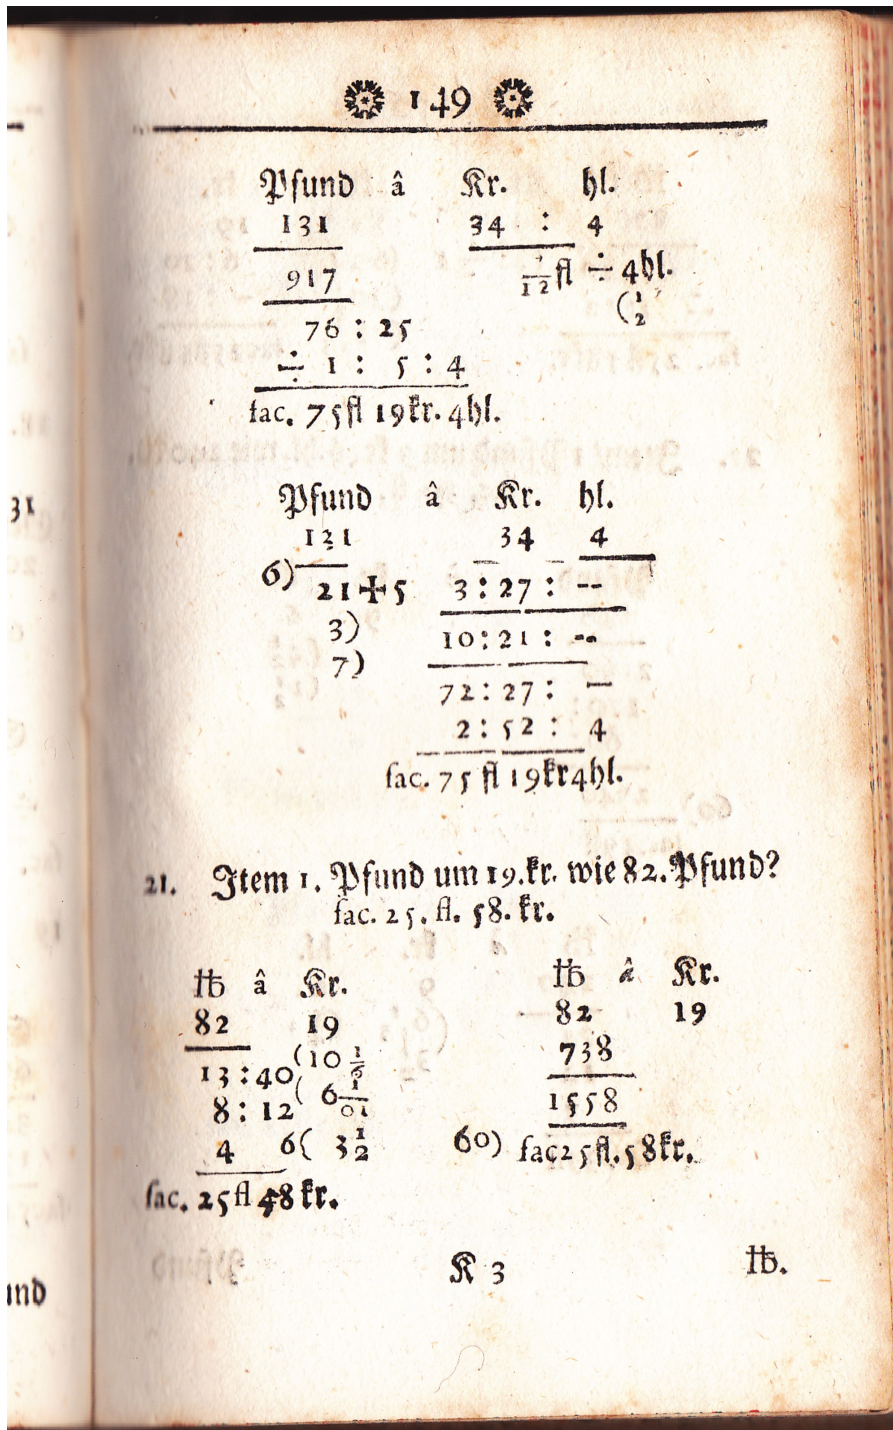 149
Pfund â Kr. hl.
131 34 : 4
917 7/12 fl ÷ 4hl.
(1/2
76 : 25
÷ 1 : 5 : 4
fac. 75 fl 19kr. 4hl.
Pfund â Kr. hl.
131 34 4
6) 21+5 3 : 27 : --
3) 10 : 21 : --
7) 72 : 27 : —
2 : 52 : 4
fac. 75 fl 19kr 4hl.
21. Item 1. Pfund um 19.kr. wie 82. Pfund?
fac. 25. fl. 58. kr.
℔ â Kr.
82 19
13 : 40 (10 1/6
8 : 12 ( 6
4 6( 3 1/2
fac. 25 fl 58 kr.
℔ â Kr.
82 19
738
1558
60) fac 25 fl. 58 kr.
K 3 ℔.
31
und